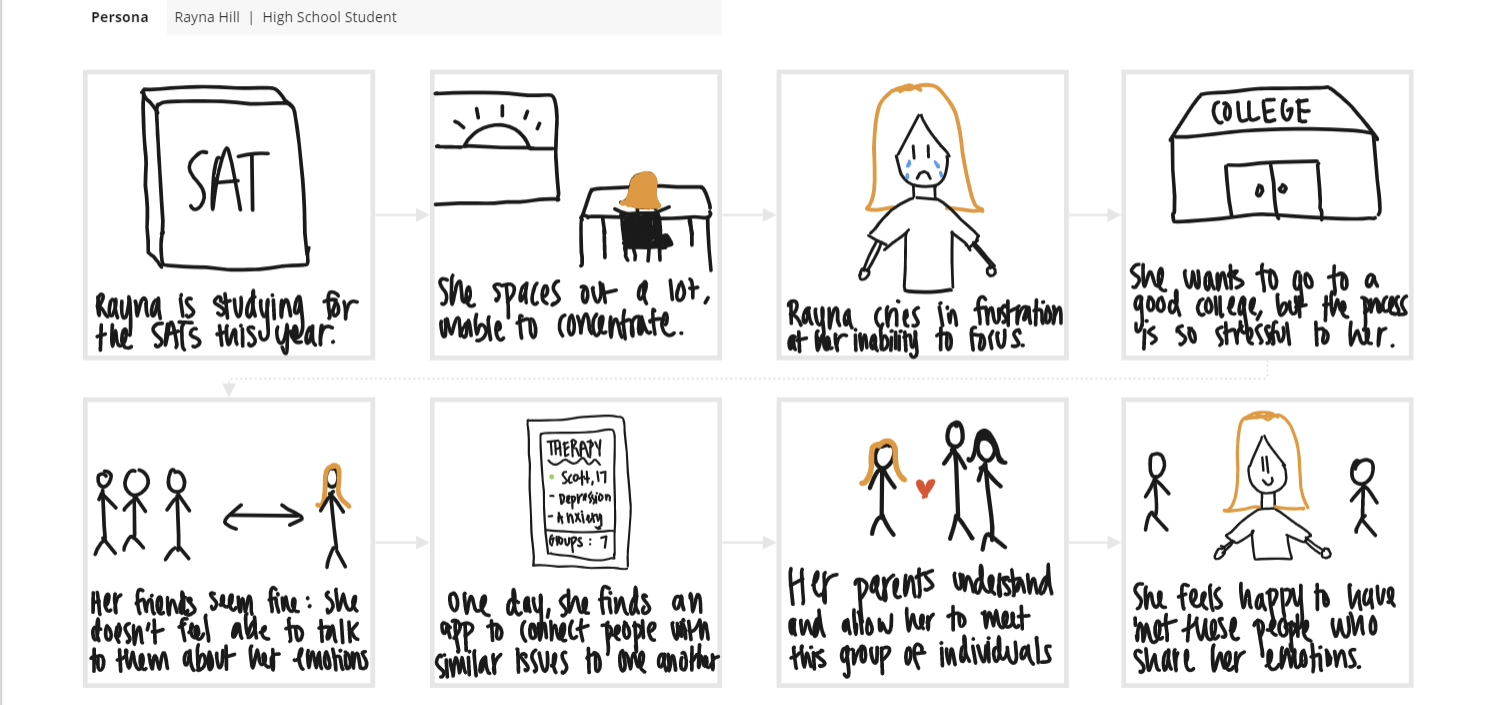 Persona
Rayna Hill | High School Student
SAT
Rayna is studying for
the SATs this year.
She spaces out a lot,
unable to concentrate.
Rayna cries in frustration
at her inability to focus.
COLLEGE
She wants to go to a
good college, but the process
is so stressful to her.
Her friends seem fine: she
doesn't feel able to talk
to them about her emotions
THERAPY
Scott, 17
- Depression
- Anxiety
Groups: 7
one day, she finds an
app to connect people with
similar issues to one another
Her parents understand
and allow her to meet
this group of individuals
She feels happy to have
met these people who
share her emotions.